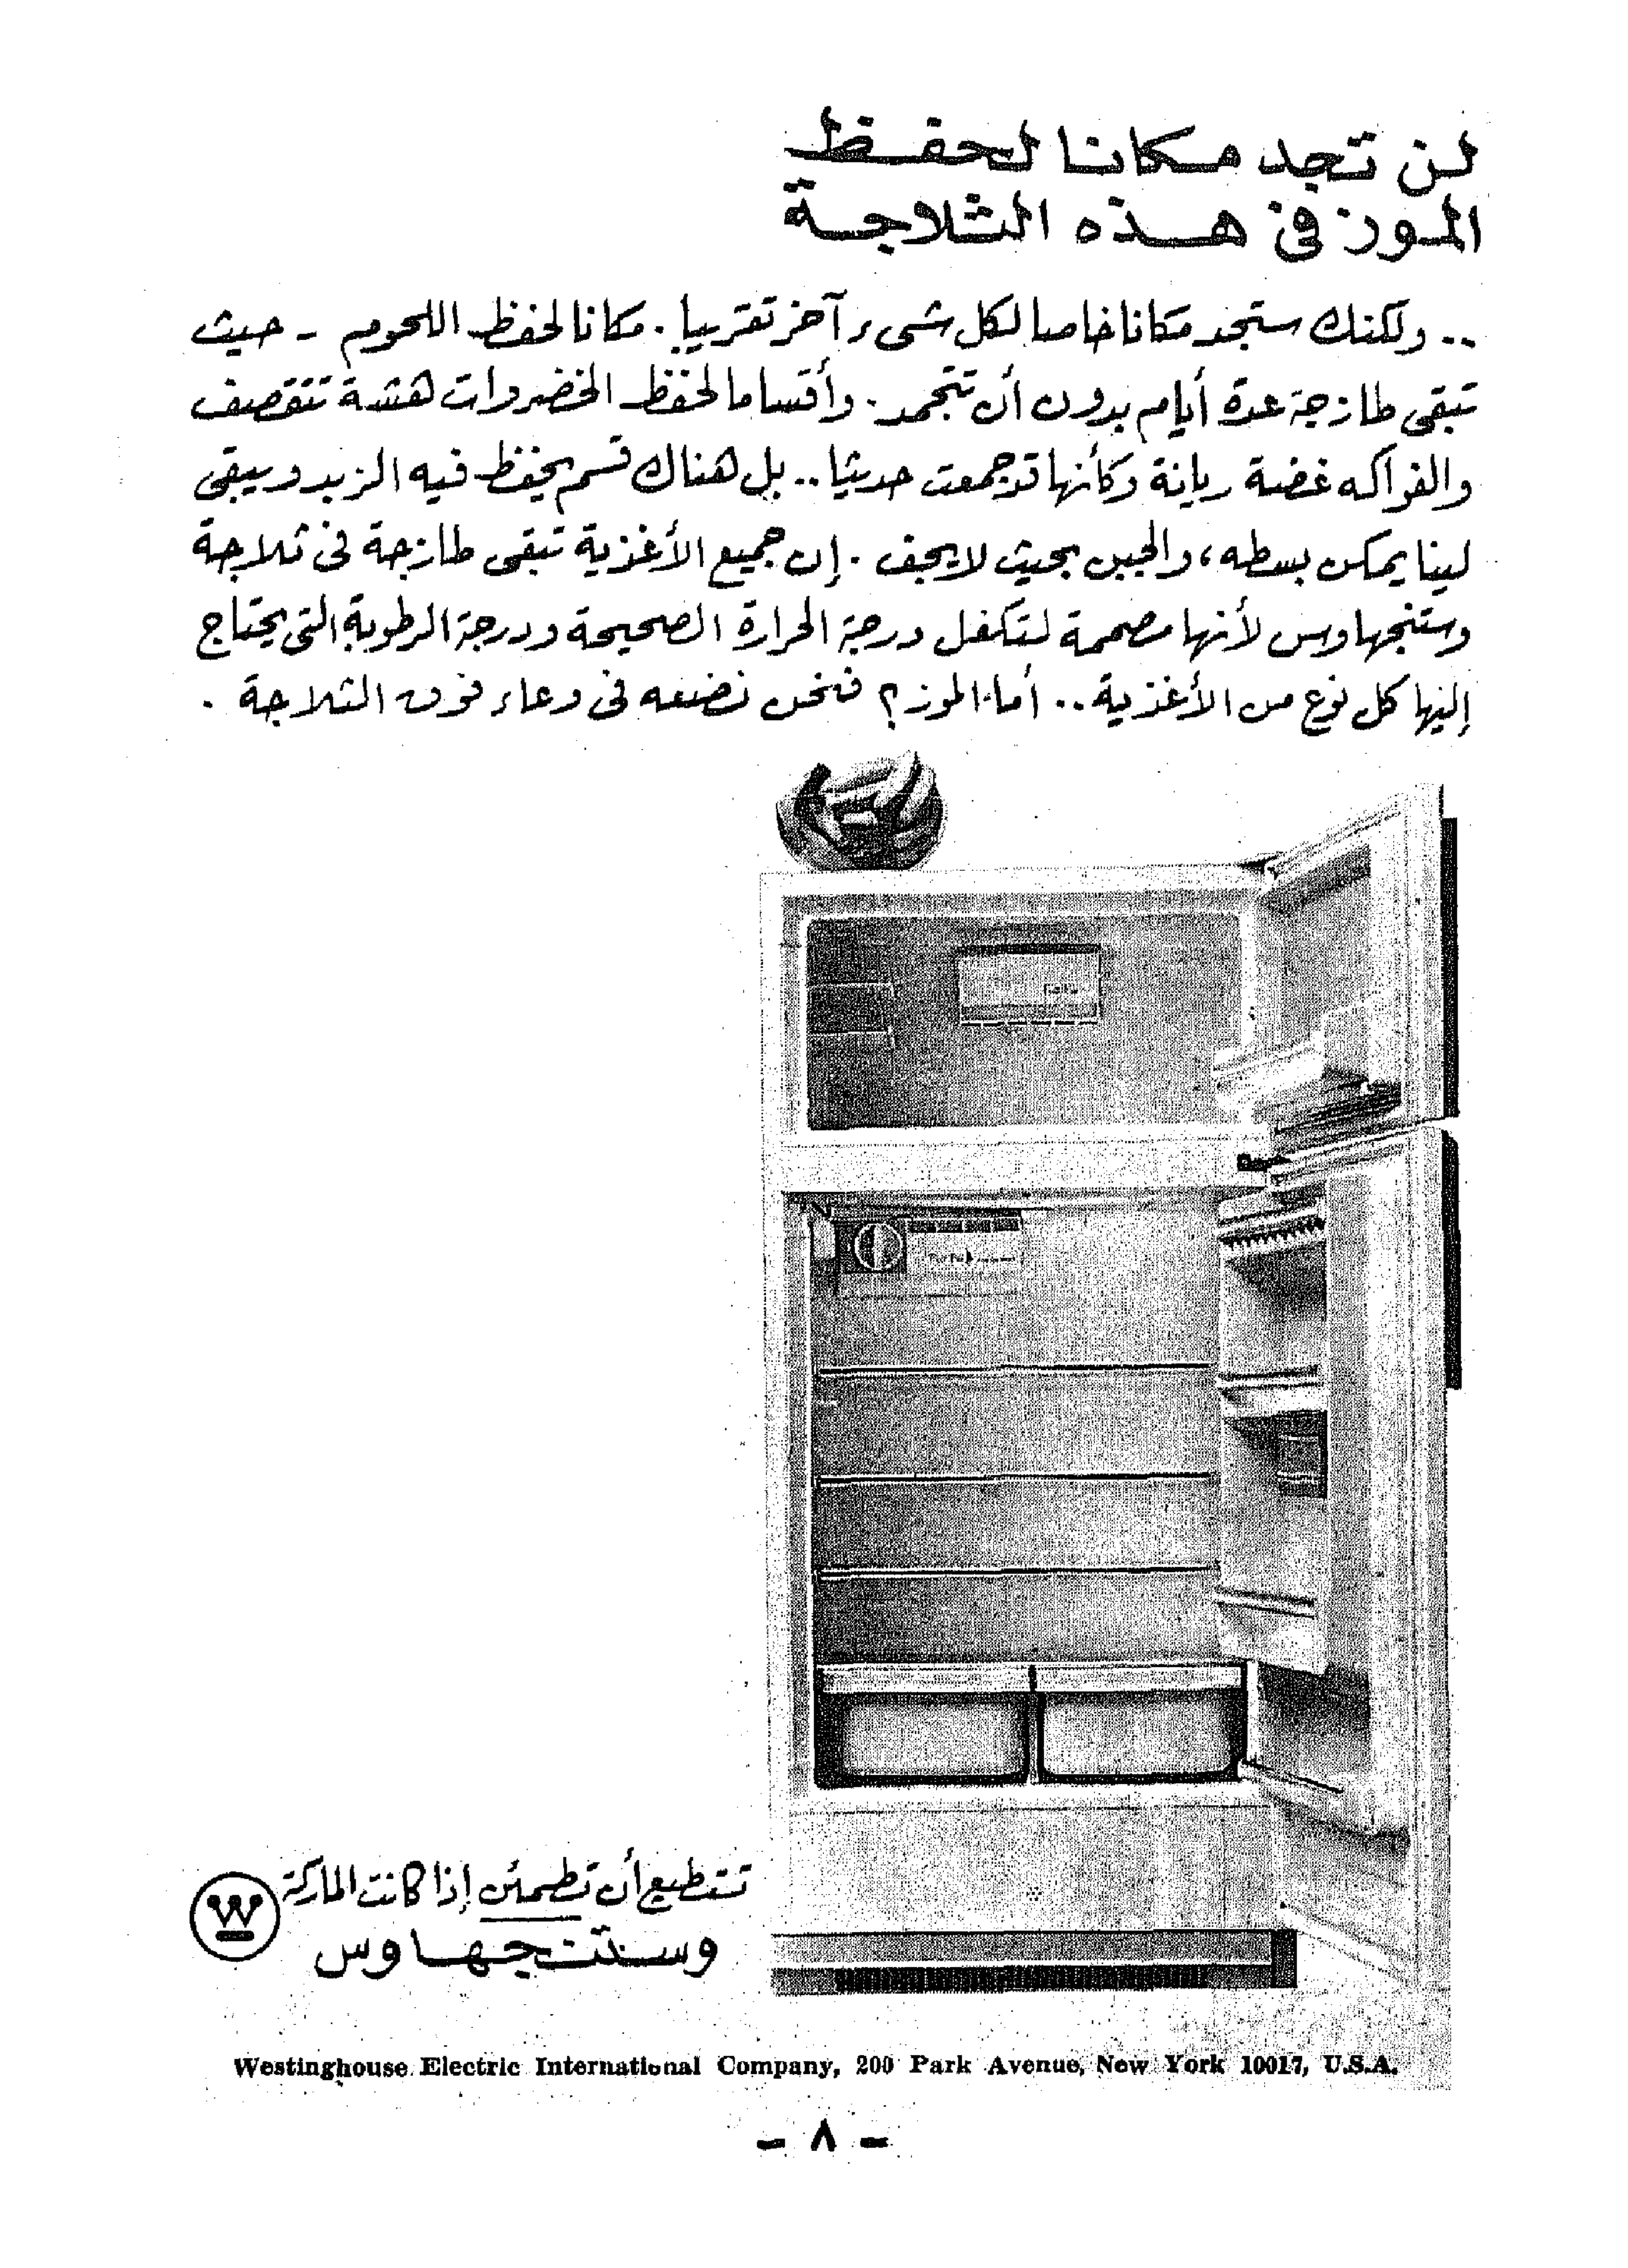 لن تجد مكانا لحفظ
الموز في هذه الثلاجة
.. ولكنك ستجد مكانا خاصا لكل شىء آخر تقريبا . مكانا لحفظ اللحوم - حيث
تبقى طازجة عدة أيام بدون أن تتجمد . وأقساما لحفظ الخضروات هشة تتقصف
والفواكه غضة ريانة وكأنها قد جمعت حديثا .. بل هناك قسم يحفظ فيه الزبد ويبقى
لينا يمكن بسطه ، والجبن بحيث لا يجف . إن جميع الأغذية تبقى طازجة فى ثلاجة
وستنجهاوس لأنها مصممة لتكفل درجة الحرارة الصحيحة ودرجة الرطوبة التى يحتاج
إليها كل نوع من الأغذية .. أما الموز ؟ فنحن نضعه فى وعاء فوق الثلاجة .
تستطيع أن تطمئن إذا كانت الماركة
وستنجهاوس
W
Westinghouse Electric International Company, 200 Park Avenue, New York 10017, U.S.A.
- ٨ -